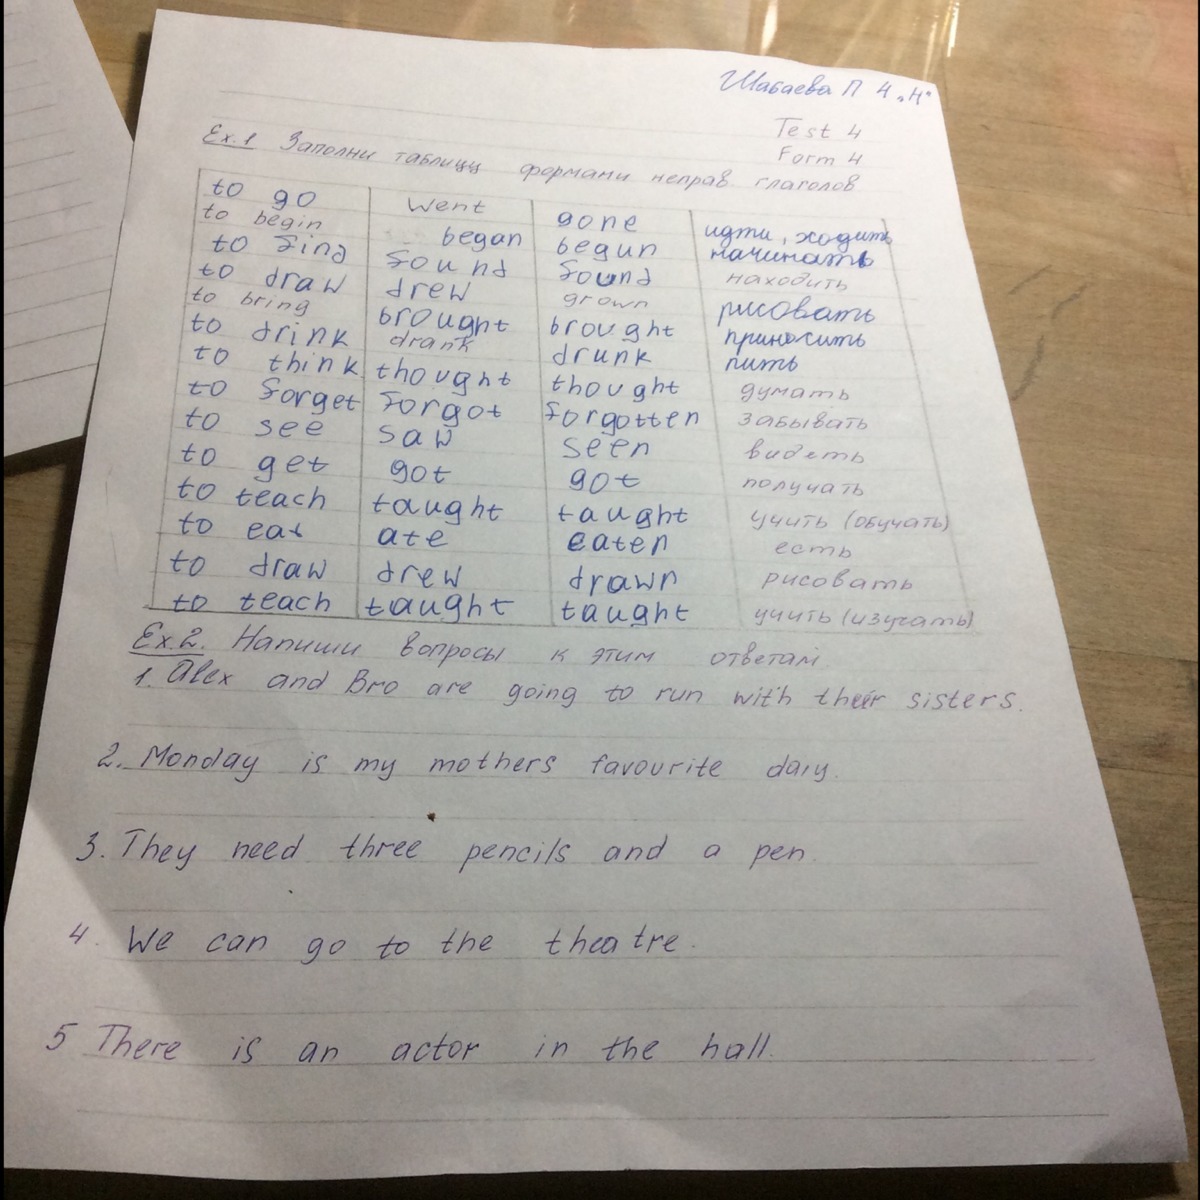 Шабаева П 4 "Н"
Test 4
Form 4
Ex.1 Заполни таблицу формами неправ. глаголов
to go went gone идти, ходить
to begin began begun начинать
to find found found находить
to draw drew grown рисовать
to bring brought brought приносить
to drink drank drunk пить
to think thought thought думать
to forget forgot forgotten забывать
to see saw seen видеть
to get got got получать
to teach taught taught учить (обучать)
to eat ate eaten есть
to draw drew drawn рисовать
to teach taught taught учить (изучать)
Ex.2. Напиши вопросы к этим ответам
1. Alex and Bro are going to run with their sisters.
2. Monday is my mothers favourite day.
3. They need three pencils and a pen.
4. We can go to the theatre.
5 There is an actor in the hall.